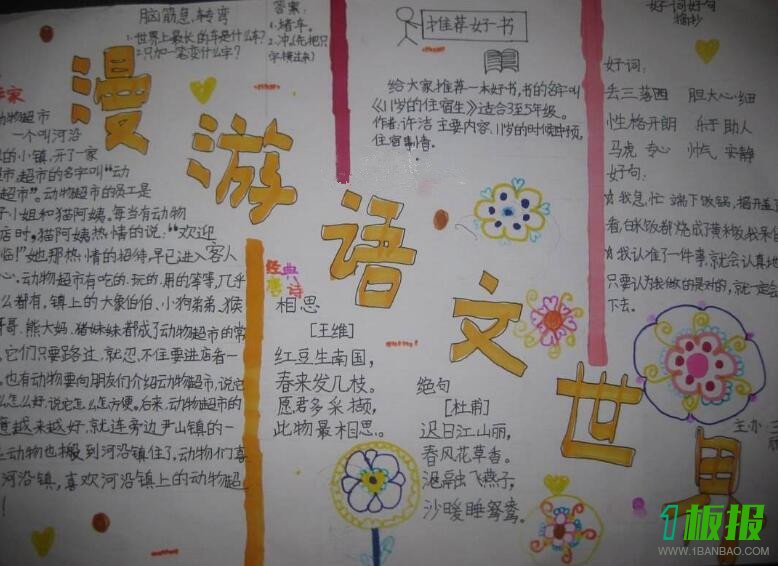 脑筋急转弯
1.世界上最长的车是什么车?
2.只加一笔变什么字?
答案:
1.堵车。
2.冲(先把只
字横过来)
推荐好书
给大家推荐一本好书,书的名字叫
《11岁的住宿生》适合3至5年级。
作者:许洁 主要内容、11岁的时候
住宿
好词好句
摘抄
好词:
丢三落四 胆大心细
性格开朗 乐于助人
马虎 专心 帅气 安静
好句:
我急忙端下饭锅,揭开盖
看,白米饭都烧成了黄米饭
我认准了一件事,就会认真地
只要认为我做的是对的,就一定会
下去。
漫游语文世界
动物超市
一个叫河沿
的小镇,开了一家
超市的名字叫“动
超市”。动物超市的员工是
小姐和猫阿姨。每当有动物
店时,猫阿姨热情的说:“欢迎
临!”她那热情的招待,早已进入客人
心。动物超市有吃的、玩的、用的等等,几乎
么都有,镇上的大象伯伯、小狗弟弟、猴
哥哥、熊大妈、猪妹妹都成了动物超市的常
它们只要路过,就忍不住要进店看一
。也有动物要向朋友们介绍动物超市,说它
么怎么好,说它怎么怎么方便。后来,动物超市的
越来越好,就连旁边尹山镇的一
动物也搬到河沿镇住了,动物们喜
河沿镇,喜欢河沿镇上的动物超
!
经典
唐诗
相思
[王维]
红豆生南国,
春来发几枝。
愿君多采撷,
此物最相思。
绝句
[杜甫]
迟日江山丽,
春风花草香。
泥融飞燕子,
沙暖睡鸳鸯。
主办:
1板报
WWW.1BANBAO.COM